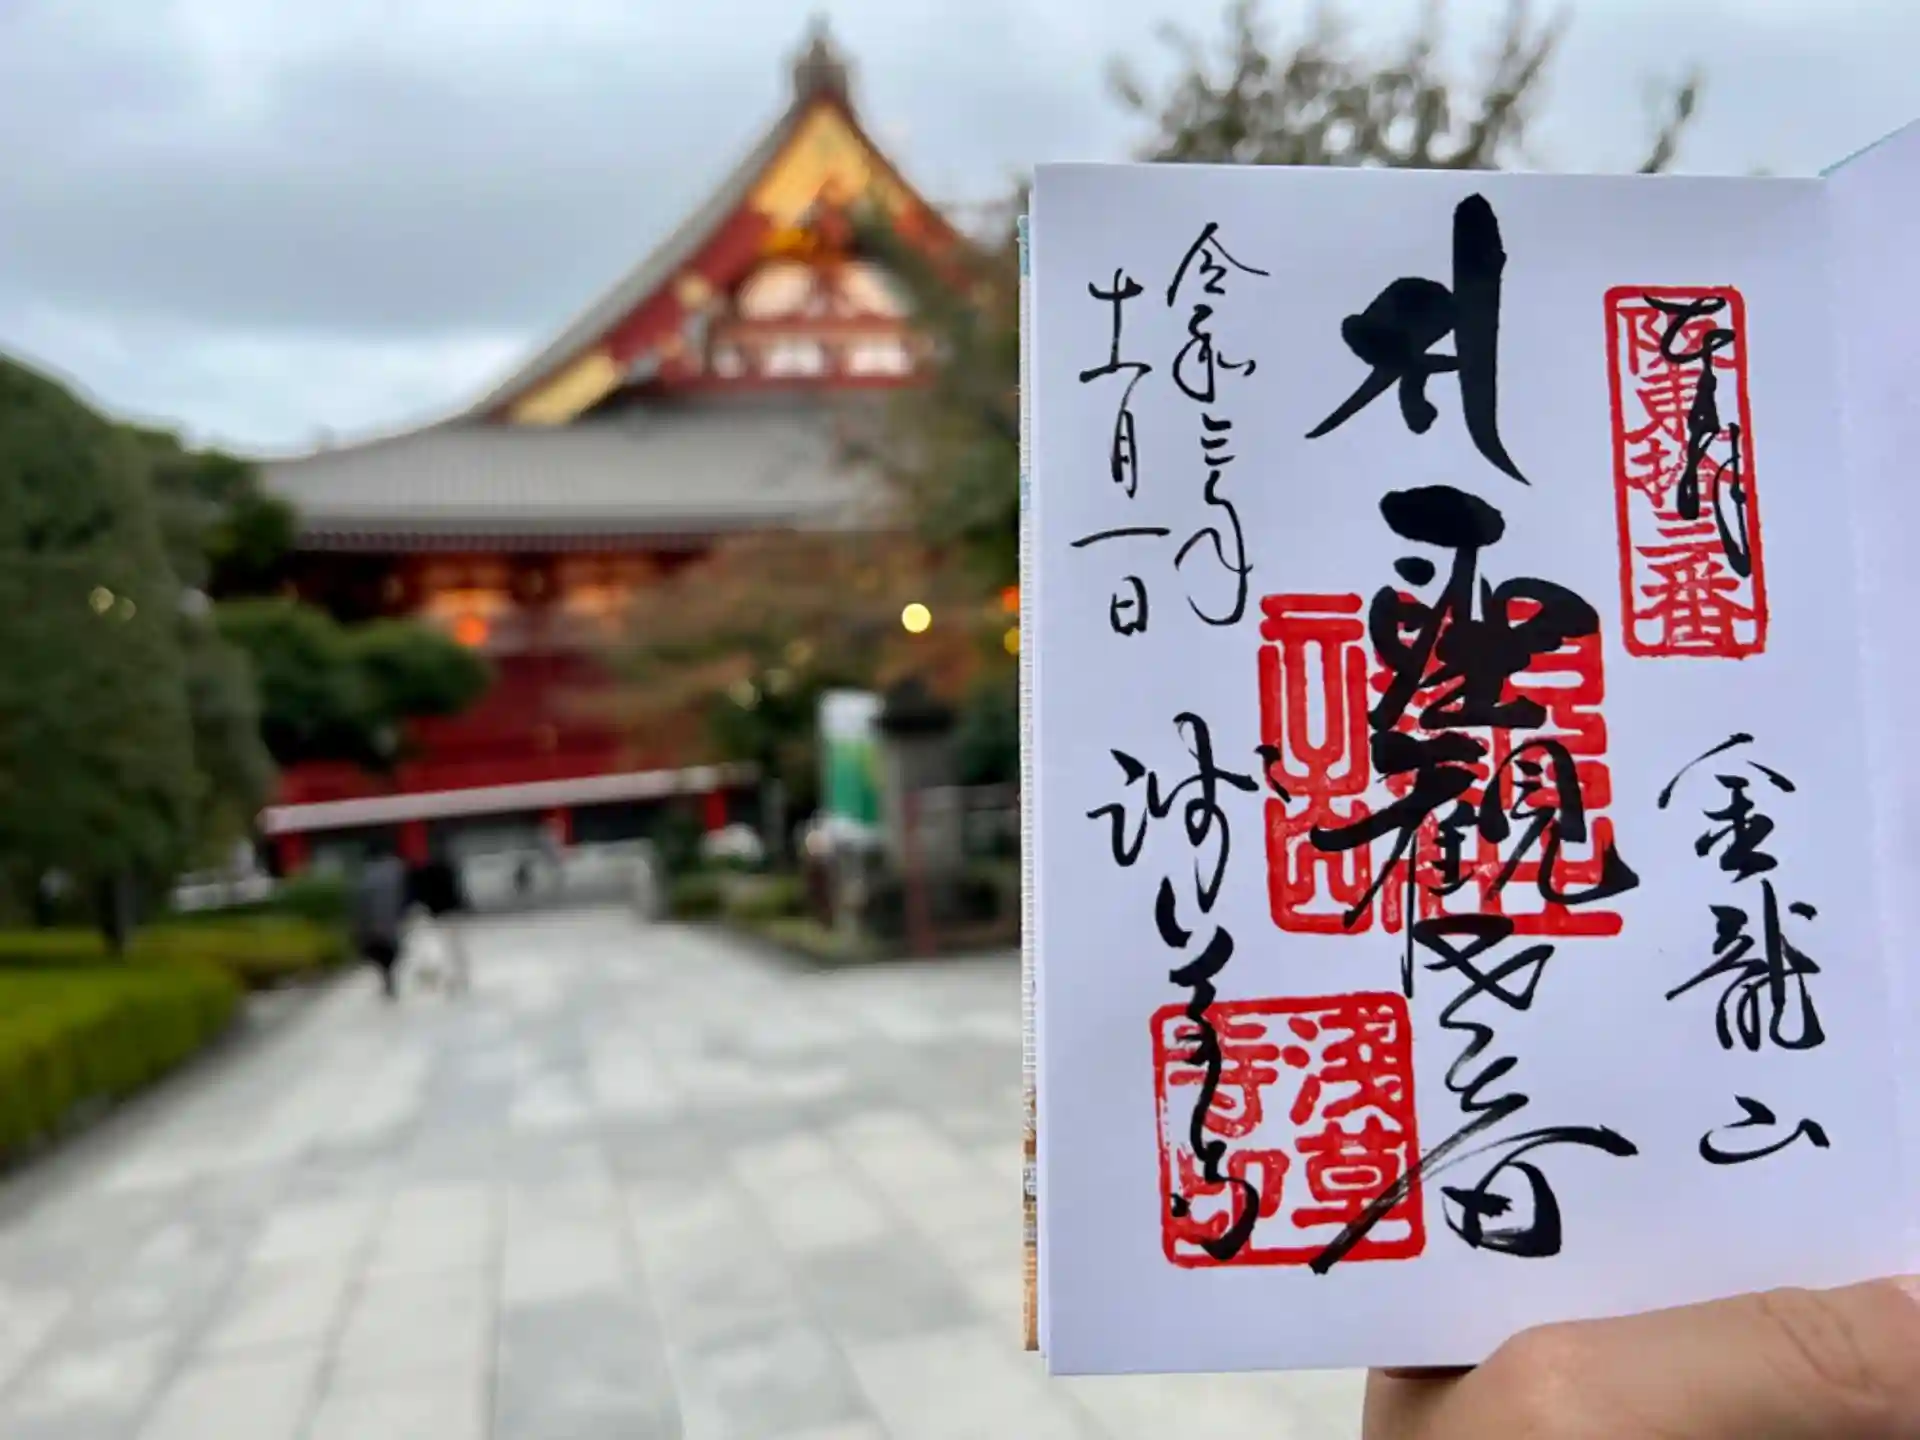 奉拝
阪東拾三番
金龍山
聖観世音
令和三年
十一月一日
浅草寺
淺草
寺印